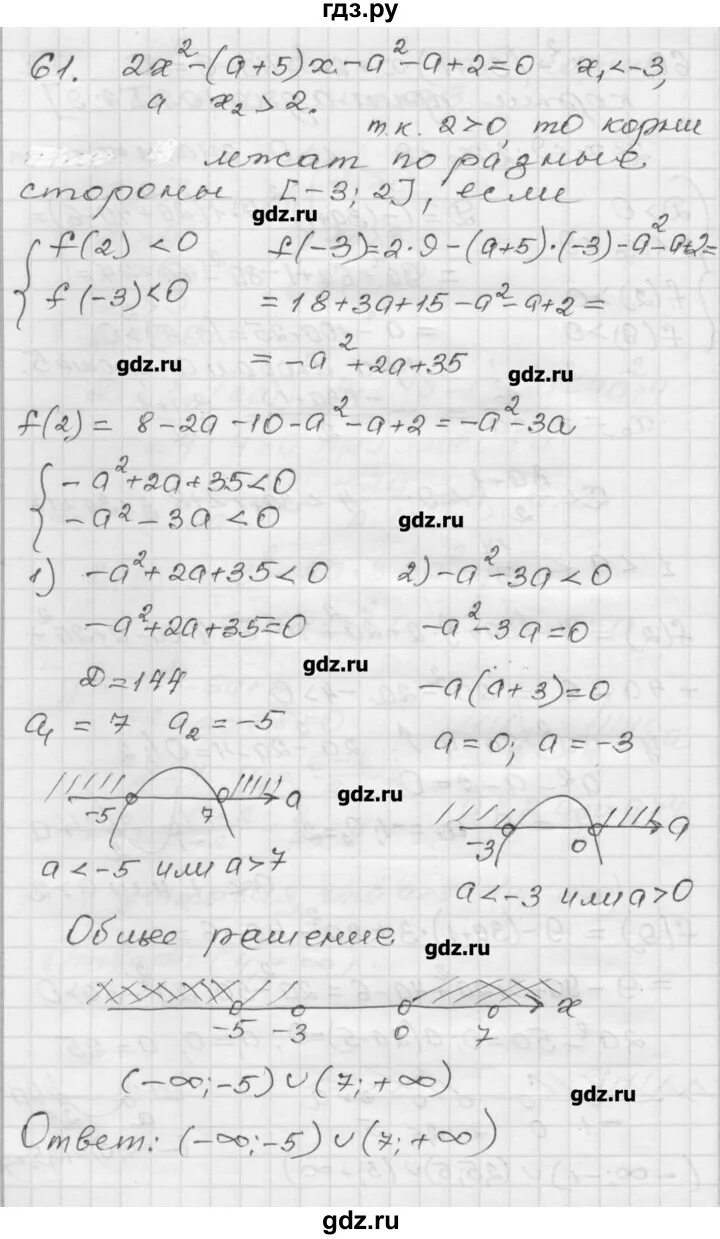 гдз.ру
61. 2x² - (a+5)x - a² - a + 2 = 0 x₁ < -3,
a x₂ > 2.
т.к. 2>0, то корни
лежат по разные
стороны [-3; 2], если
gdz.ru
{ f(2) < 0 f(-3) = 2·9 - (a+5)·(-3) - a² - a + 2 =
f(-3) < 0 = 18 + 3a + 15 - a² - a + 2 =
gdz.ru = -a² + 2a + 35 gdz.ru
f(2) = 8 - 2a - 10 - a² - a + 2 = -a² - 3a
{ -a² + 2a + 35 < 0
-a² - 3a < 0 gdz.ru
1) -a² + 2a + 35 < 0 2) -a² - 3a < 0
-a² + 2a + 35 = 0 -a² - 3a = 0
gdz.ru
D = 144 -a(a+3) = 0
a₁ = 7 a₂ = -5 a = 0; a = -3
-5 7 a gdz.ru
-3 0 a
a < -5 или a > 7
a < -3 или a > 0
Общее решение gdz.ru
-5 -3 0 7 x
(-∞; -5) ∪ (7; +∞) gdz.ru
Ответ: (-∞; -5) ∪ (7; +∞)
gdz.ru